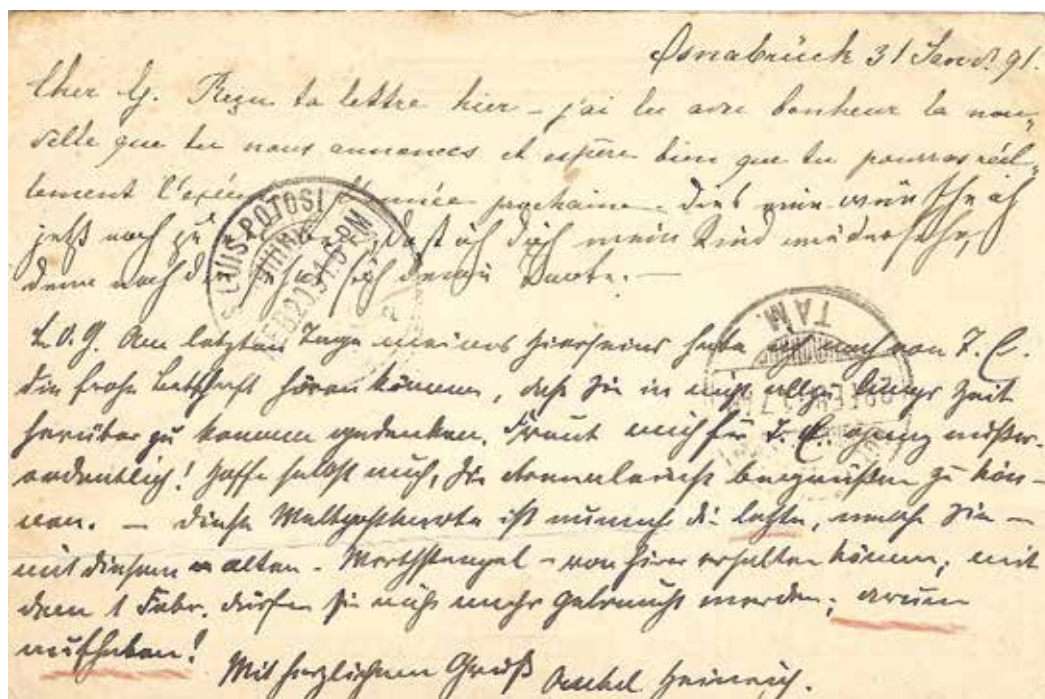 Osnabrück 31 Janv. 91.
Cher G. Reçu ta lettre hier – j'ai lu avec bonheur la nou-
velle que tu nous annonces et espère bien que tu pourras réel-
lement l'année prochaine. wünsche ich
jetzt noch zu daß ich Dich mein Kind wiedersehe,
denn nach
L. O. G. Am letzten Tage meines Hierseins habe ich noch von I. C.
die frohe Botschaft hören können, daß Sie in nicht allzu langer Zeit
herüber zu kommen gedenken. Freut mich für T. E. ganz außer-
ordentlich! Hoffe selbst auch, Sie begrüßen zu kön-
nen. – Diese Weltpostkarte ist nunmehr die letzte, welche Sie –
mit diesem alten – Werthstempel – von hier erhalten können, mit
dem 1 Febr. dürfen sie nicht mehr gebraucht werden; darum
aufheben!
Mit herzlichem Gruß Onkel Heinrich.
LUIS POTOSI
TAM.